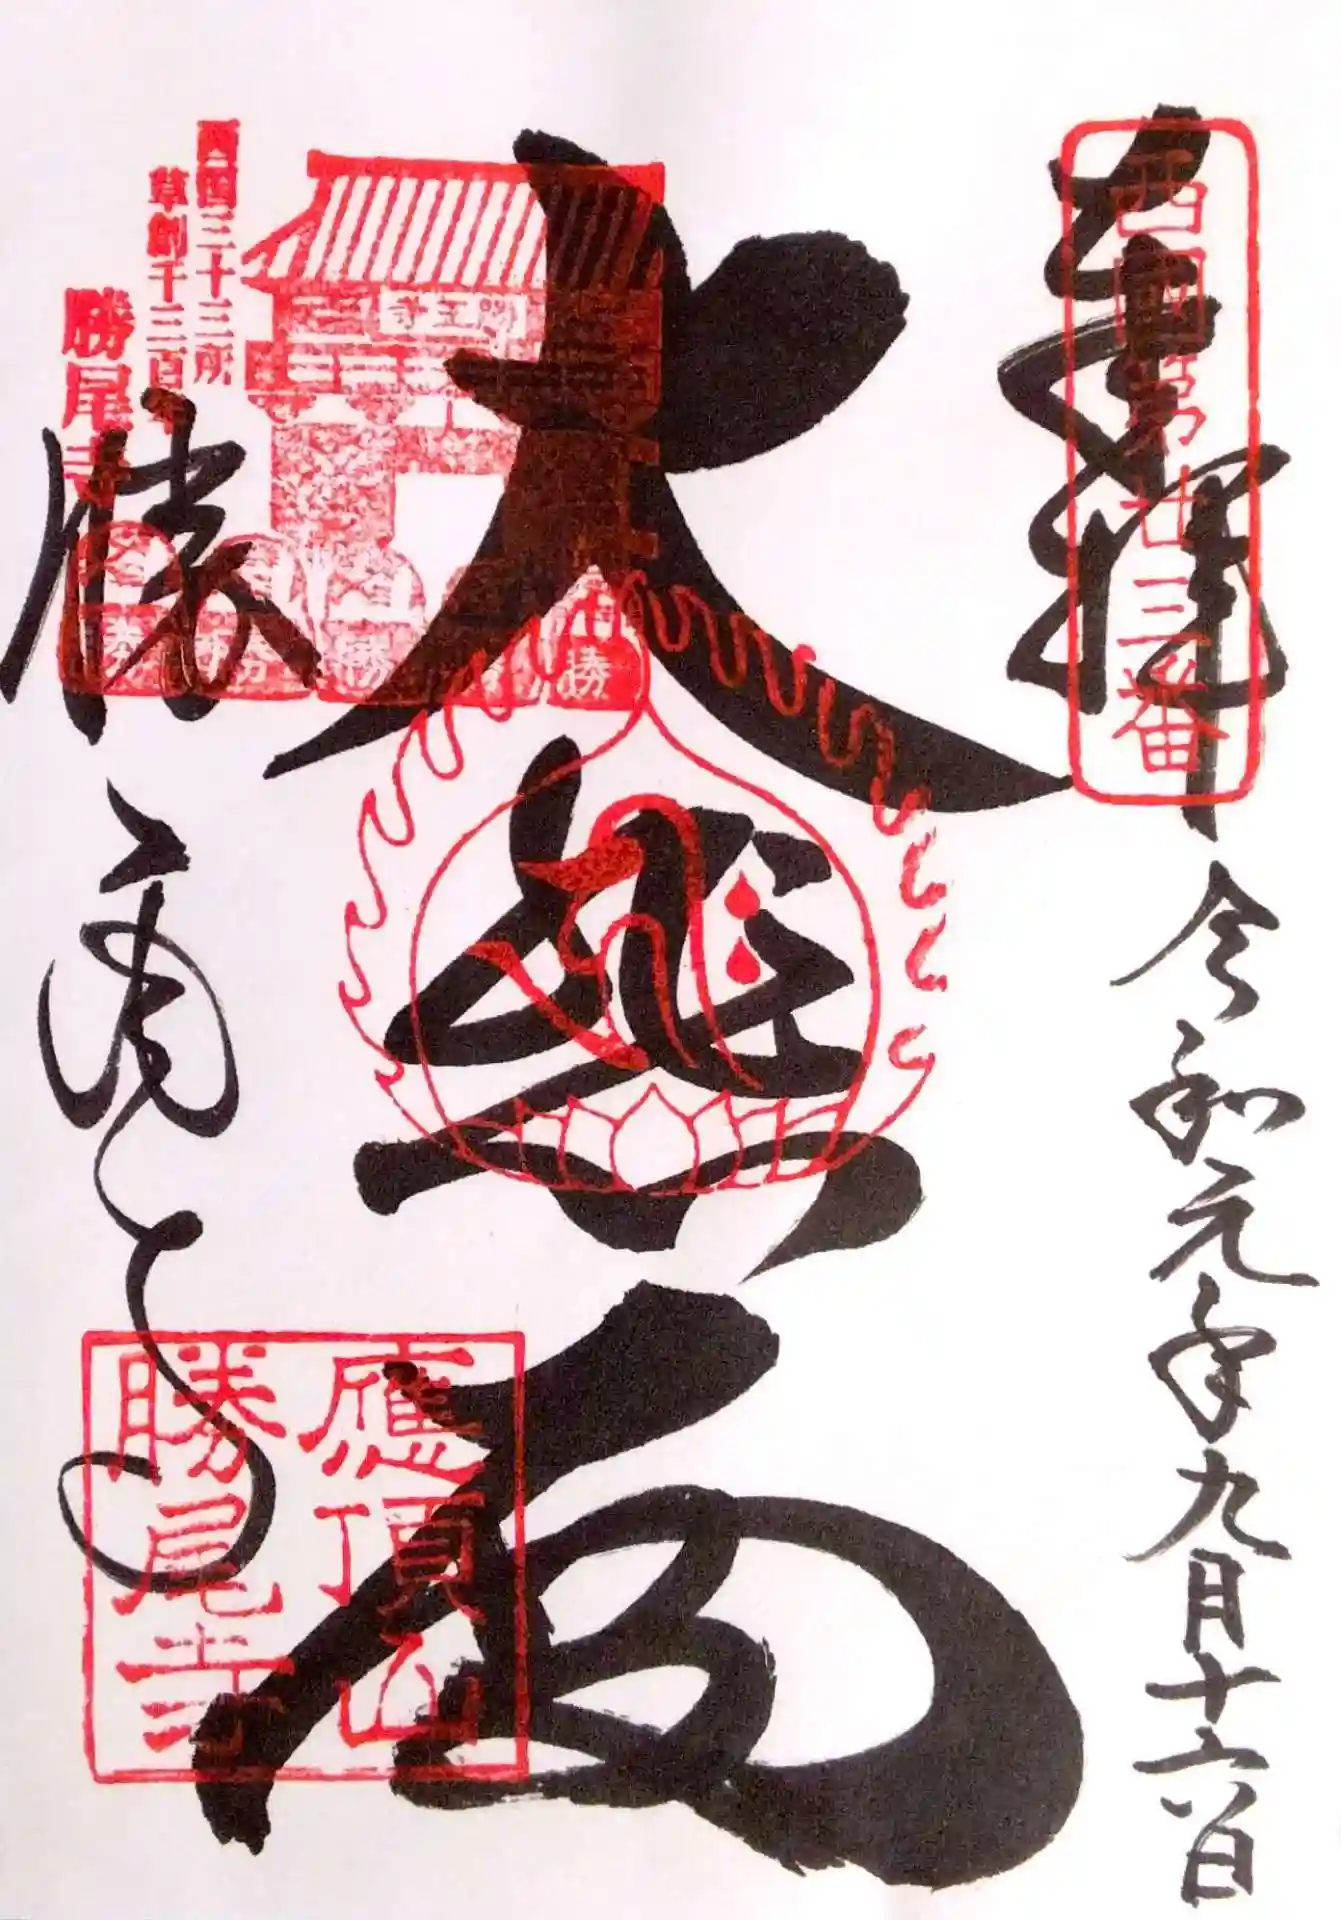 奉拝
西國第廿三番
令和元年九月十六日
大悲殿
西国三十三所
草創千三百年
勝尾寺
勝尾寺
應頂山
勝尾寺